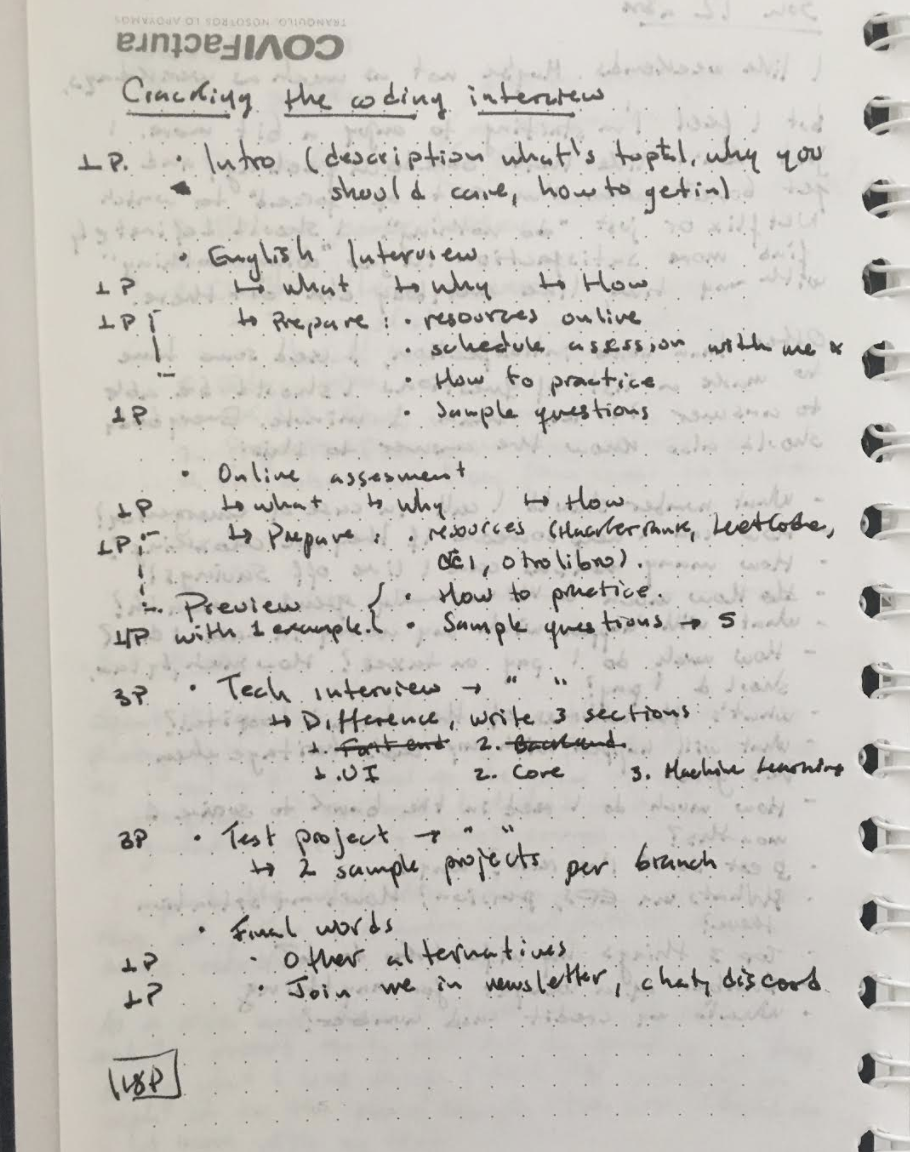 COVIFactura
TRANQUILO, NOSOTROS LO APOYAMOS
Cracking the coding interview
1P. • Intro (description what's toptal, why you
should care, how to get in)
• English Interview
1P ↳ what ↳ why ↳ How
1P ↳ Prepare: • resources online
• schedule a session with me *
• How to practice
1P • Sample questions
• Online assesment
1P ↳ what ↳ why ↳ How
1P ↳ Prepare: • resources (Hackerrank, LeetCode,
CCI, otro libro).
Preview { • How to practice.
1P with 1 example. { • Sample questions → 5
3P • Tech interview → " "
↳ Difference, write 3 sections
1. Front end 2. Backend.
1. UI 2. Core 3. Machine Learning
3P • Test project → " "
↳ 2 sample projects per branch
• Final words
1P • Other alternatives
1P • Join me in newsletter, chat, discord
18P